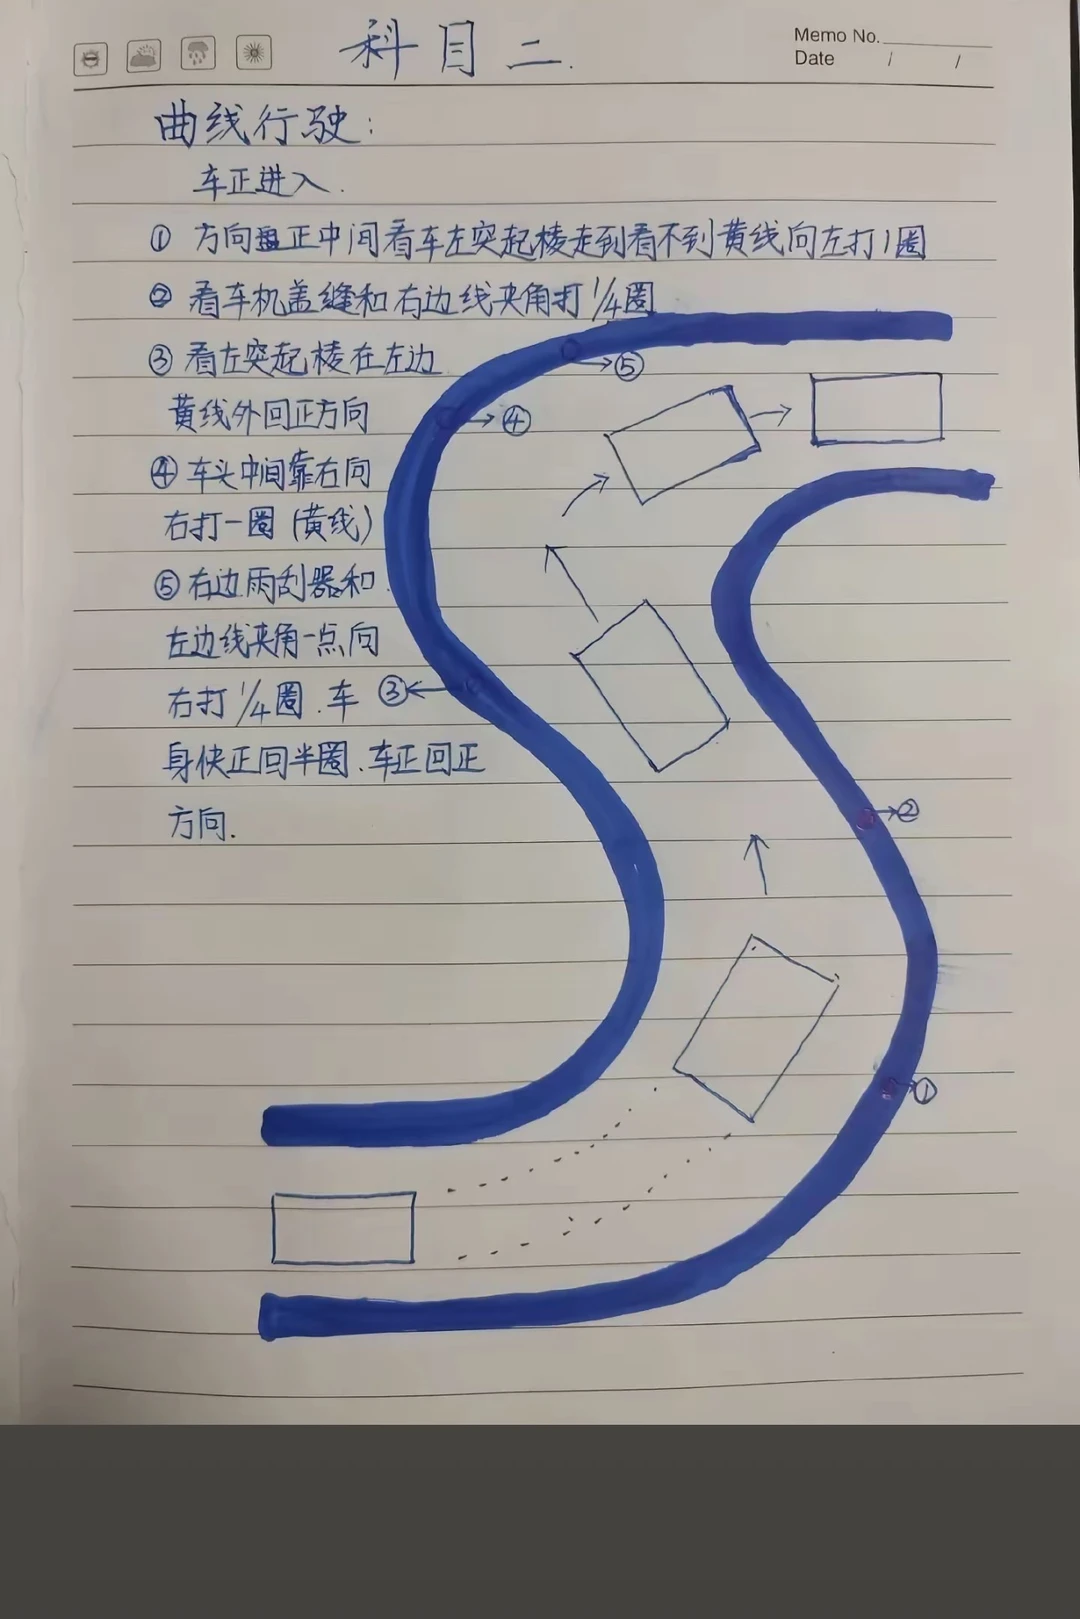 科目二.
Memo No.
Date / /
曲线行驶:
车正进入.
① 方向盘正中间看车左突起棱走到看不到黄线向左打1圈
② 看车机盖缝和右边线夹角打1/4圈
③ 看左突起棱在左边
黄线外回正方向
④ 车头中间靠右向
右打一圈(黄线)
⑤ 右边雨刮器和
左边线夹角一点向
右打1/4圈.车
身快正回半圈.车正回正
方向.
→⑤
→④
③←
→②
→①